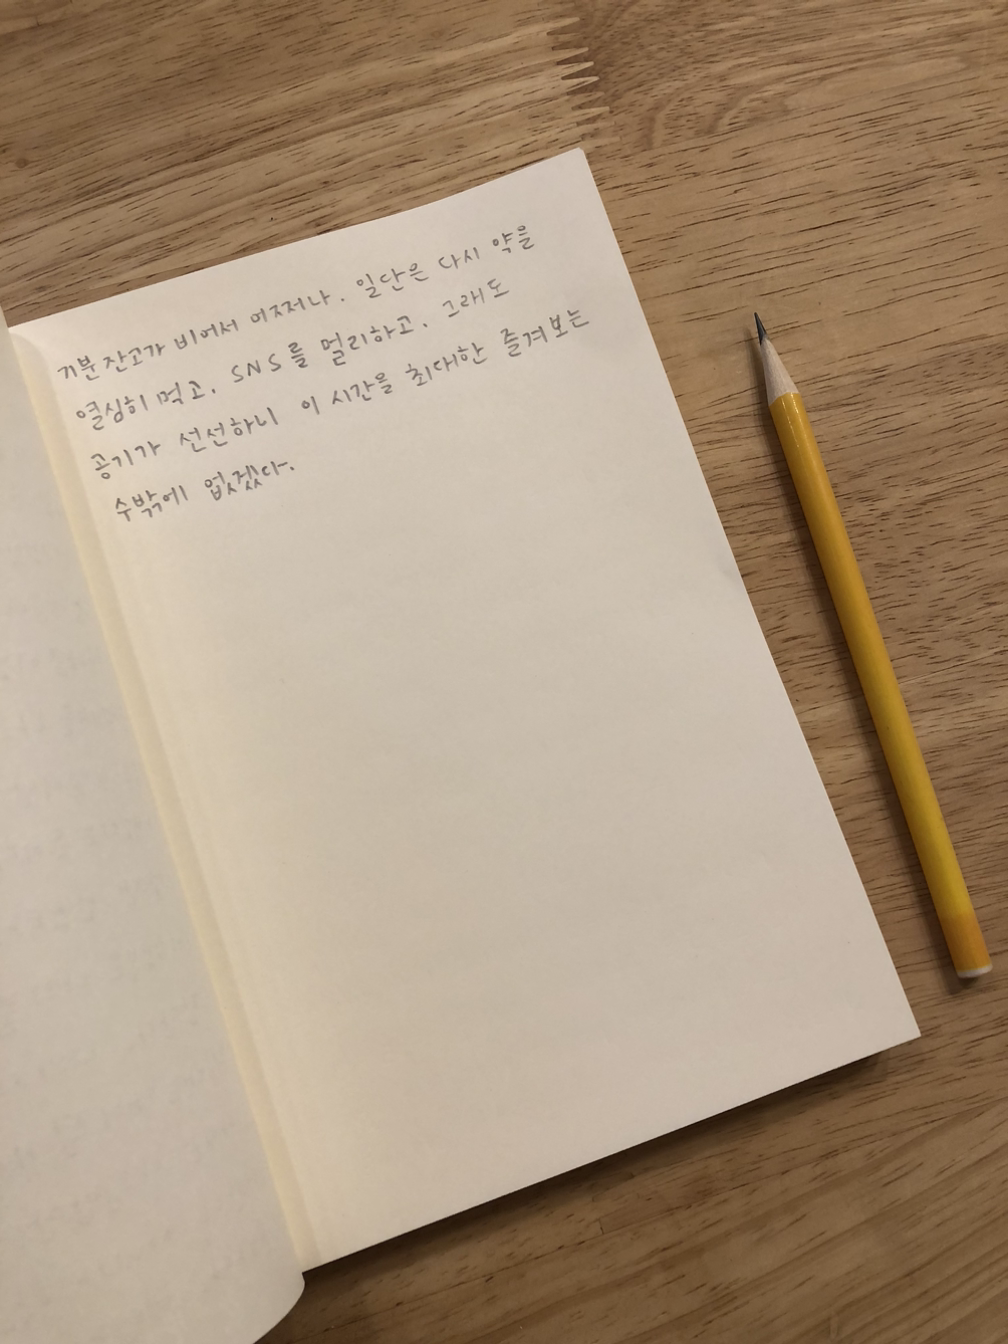 기분 잔고가 비어서 어쩌나. 일단은 다시 약을
열심히 먹고, SNS를 멀리하고. 그래도
공기가 선선하니 이 시간을 최대한 즐겨보는
수밖에 없겠다.